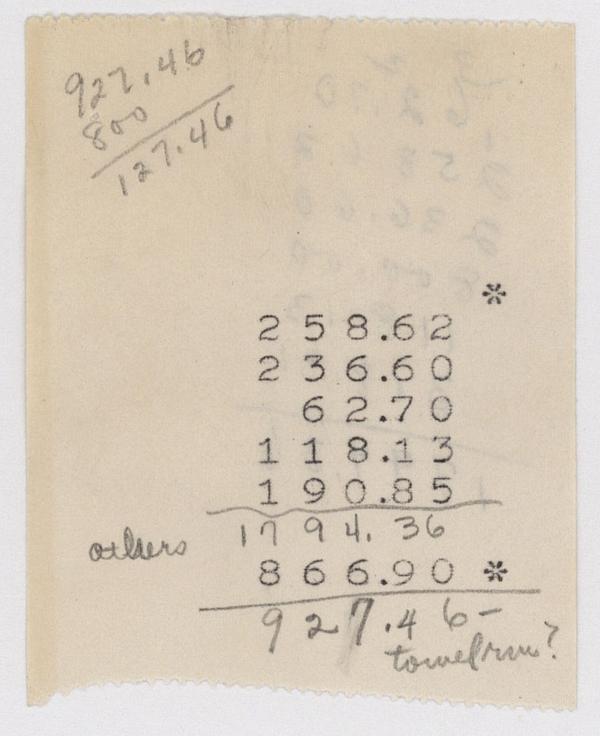 927.46
800
127.46
*
258.62
236.60
62.70
118.13
190.85
1794.36
others
866.90 *
927.46-